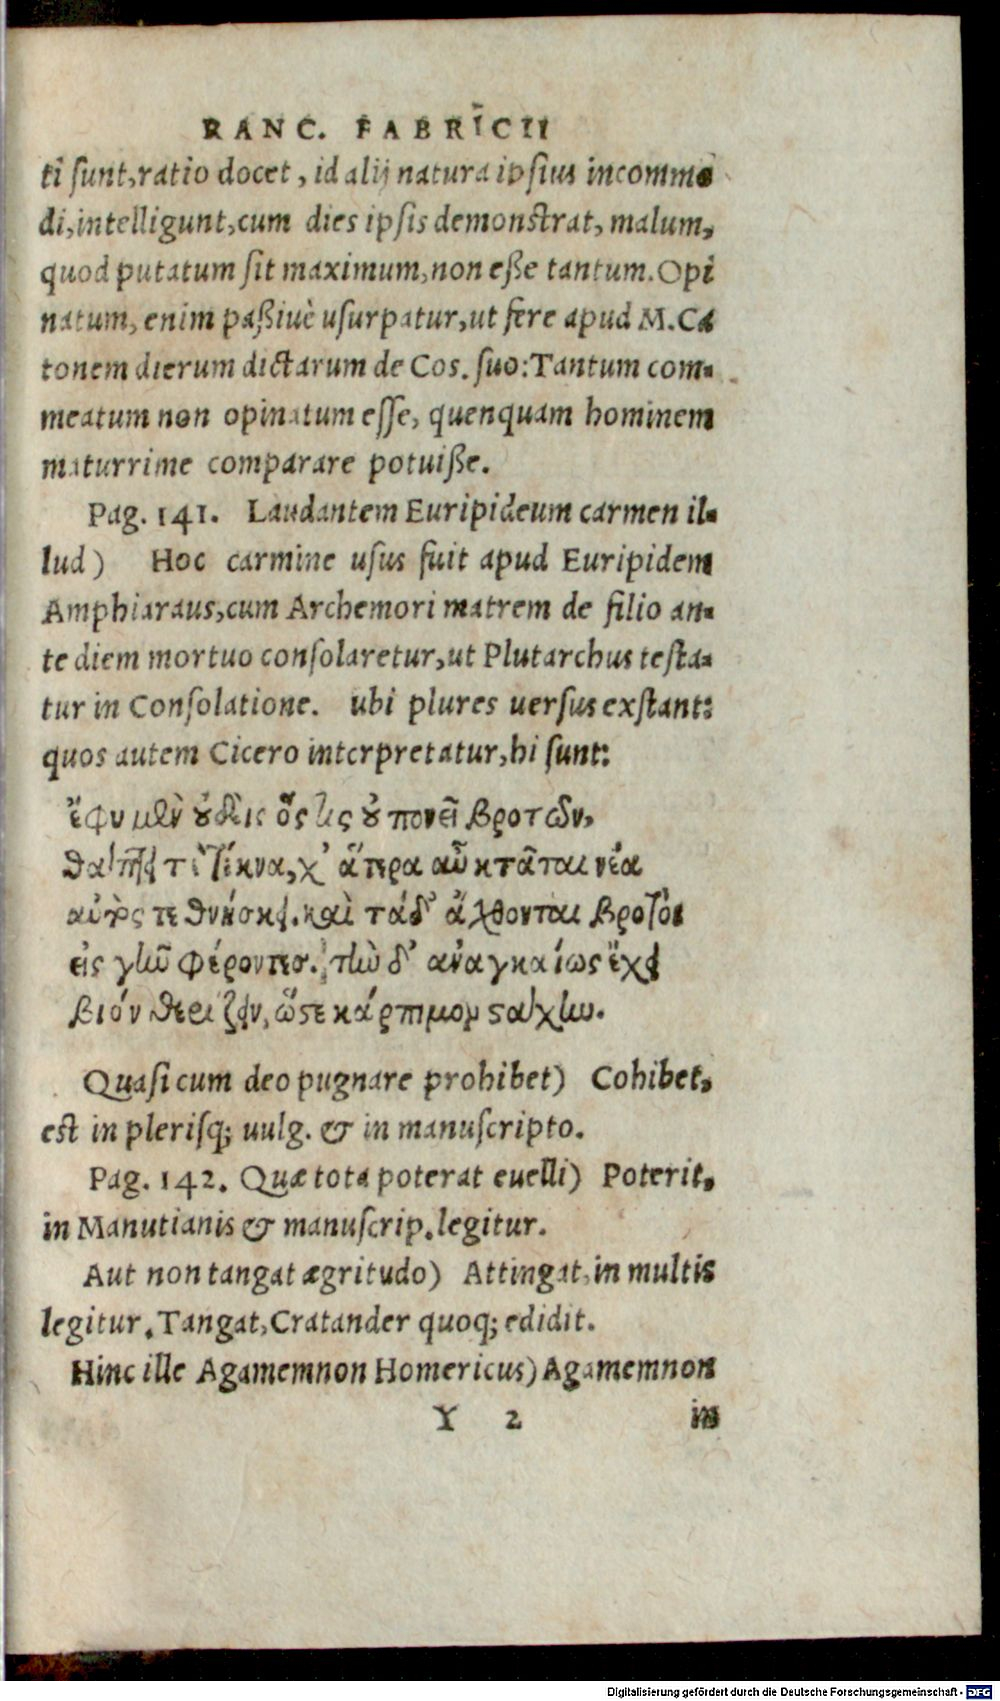 RANC. FABRICII
ti sunt, ratio docet, id alij natura ipsius incommo
di, intelligunt, cum dies ipsis demonstrat, malum,
quod putatum sit maximum, non eße tantum. Opi
natum, enim paßiuè usurpatur, ut fere apud M. Ca
tonem dierum dictarum de Cos. suo: Tantum com-
meatum non opinatum esse, quenquam hominem
maturrime comparare potuiße.
Pag. 141. Laudantem Euripideum carmen il-
lud) Hoc carmine usus fuit apud Euripidem
Amphiaraus, cum Archemori matrem de filio an-
te diem mortuo consolaretur, ut Plutarchus testa-
tur in Consolatione. ubi plures uersus exstant:
quos autem Cicero interpretatur, hi sunt:
ἔφυ μὲν οὐδεὶς ὅς τις οὐ πονεῖ βροτῶν,
θάπτει τε τέκνα, χ' ἅτερα αὖ κτᾶται νέα
αὐτός τε θνήσκει. καὶ τάδ' ἄχθονται βροτοὶ
εἰς γῆν φέροντες. τὴν δ' ἀναγκαίως ἔχει
βιόν θερίζειν, ὥστε κάρπιμον στάχυν.
Quasi cum deo pugnare prohibet) Cohibet,
est in plerisq; uulg. & in manuscripto.
Pag. 142. Quæ tota poterat euelli) Poterit,
in Manutianis & manuscrip. legitur.
Aut non tangat ægritudo) Attingat, in multis
legitur. Tangat, Cratander quoq; edidit.
Hinc ille Agamemnon Homericus) Agamemnon
Y 2 in
Digitalisierung gefördert durch die Deutsche Forschungsgemeinschaft - DFG